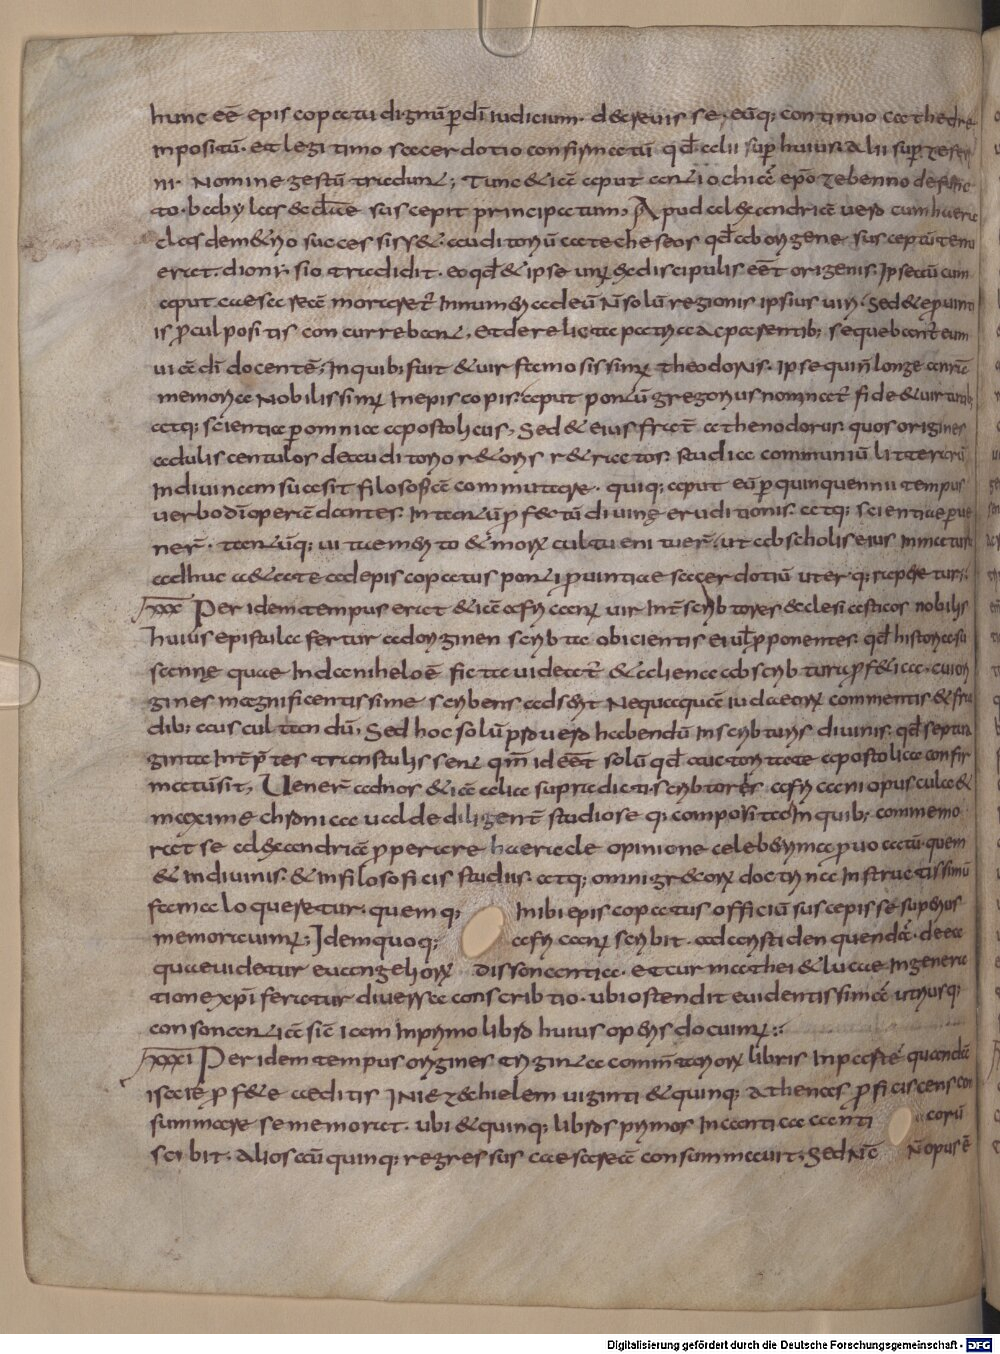 hunc eē episcopatu dignū ꝑdī iudicium· decreuisse, eūq; continuo cathedre
inpositū· et legitimo sacerdotio confirmatū qđ alii sup huius alii sup zefe
ni· Nomine gestū tradunt; Tunc & iā aput antiochiā epō zebenno defunc
to· babylas ecclae suscepit principatum, Apud alexandriā uero cum hera
clas demetrio successiss&· auditoriū catecheseos qđ ab origene susceptū tenu
erat· dionisio tradidit· eo qđ & ipse unꝰ ex discipulis eēt origenis. Ipse aū cum
aput caesaream moraretr̄ Innumerae adeū N̄ solū regionis ipsius uiri· Sed & e puinti
is ꝓcul positis concurrebant· et derelicta patria ac parentib; sequebant̄ eum
uiā dī docentē; Inquib; fuit & uir famosissimꝰ theodorus· Ipse qui n̄ longe an̄ nrā
memoria Nobilissimꝰ Inepiscopis aput pontū gregorius nominat̄ fide & uirtutib;
atq; scientia ꝑ omnia apostolicus, Sed & eius frat̄ athenodorus· quos origines
adulis centulos de auditorio r&oris r&ractos studia communiū litterarū
In diuinam suasit filosofiā commutare· quiq; aput eū ꝑ quinquenniu tempus
uerbo dī operā dantes· In tantū ꝓfectū diuinę eruditionis· atq; scientiae ꝑue
ner̄· tantūq; uitae merito & morꝝ cultu eni tuer̄· ut ab scholis eius Inmatura
adhuc aetate ad episcopatus ponti ꝓuintiae sacerdotiū uterq; raperetur;
xxx Per idem tempus erat & iā africanꝰ uir Int̄ scriptores ecclesiasticos nobilis
huius epistula fertur ad originen scribta obicientis ei ul ꝓponentes· qđ historia su
sanne quae In danihelo ē ficta uideat̄ & aliena ab scribtura ꝓfetica· cui ori
gines magnificentissime scribens adserit Nequaquā iudaeorꝝ commentis & frau
dib; auscultandū, Sed hoc solū ꝓ uero habendū In scribturis diuinis· qđ septua
ginta Int̄p̄tes transtulissent qm̄ id eēt solū qđ auctoritate apostolica confir
matūsit, Uener̄ ad nos & iā alia supradicti scribtoris africani opuscula &
maxime chronica ualde diligent̄ studioseq; composita In quib; commemo
rat se alexandriā ꝓperare heracle opinione celeberrima ꝓuocatū quem
& Indiuinis· & Infilosoficis studiis· atq; omni grecorꝝ doctrina Instructissimū
fama loqueretur· quemq; inibi episcopatus officiū suscepisse superius
memorauimꝰ; Idem quoq; africanꝰ scribit· ad aristiden quendā· de ea
quae uidetur euangeliorꝝ dissonantia· et cur mathei & lucae In genera
tione xp̄i feratur diuersa conscribtio· ubi ostendit euidentissimā utriusq;
consonantiā sic̄ iam Inprimo libro huius operis docuimꝰ;
xxxi Per idem tempus origines triginta commentoriorꝝ libris Inpaestē quandā
isaie ꝓfete aeditis IN iezechielem uiginti & quinq; Athenas ꝓficiscens con
summare se memorat· ubi & quinq; libros primos In cantica canticorū
scribit· Alios aū quinq; regressus caesaream consummauit· Sed N̄c N̄ opus ē
Digitalisierung gefördert durch die Deutsche Forschungsgemeinschaft - DFG